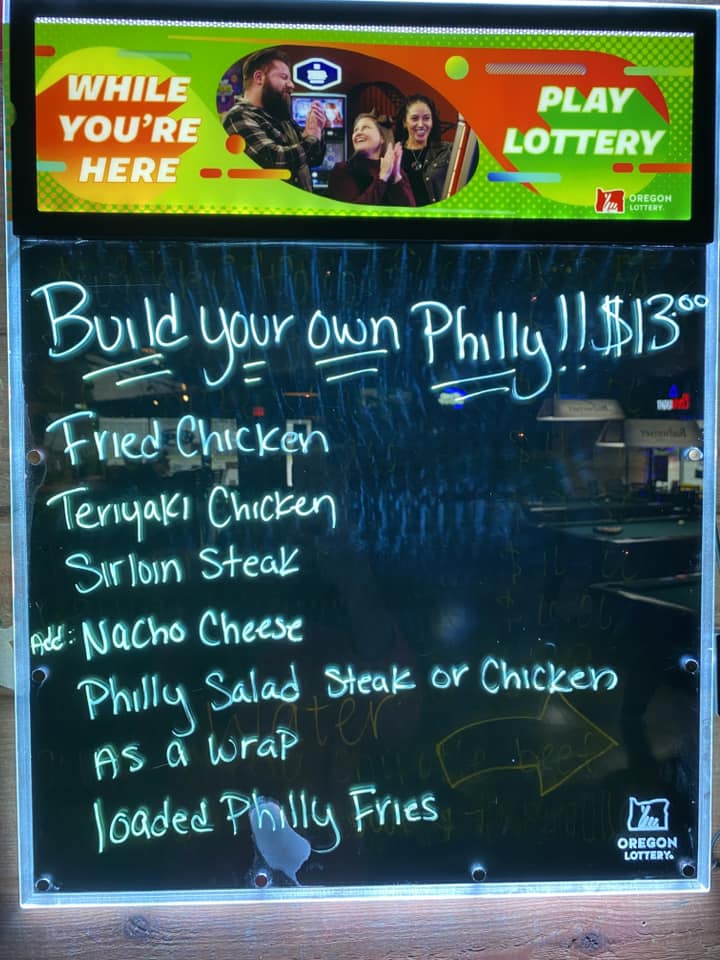 WHILE
YOU'RE
HERE
PLAY
LOTTERY
OREGON
LOTTERY.
Build your own Philly!! $13.00
Fried Chicken
Teriyaki Chicken
Sirloin Steak
Add: Nacho Cheese
Philly Salad Steak or Chicken
As a wrap
loaded Philly Fries
Water
beef
OREGON
LOTTERY.